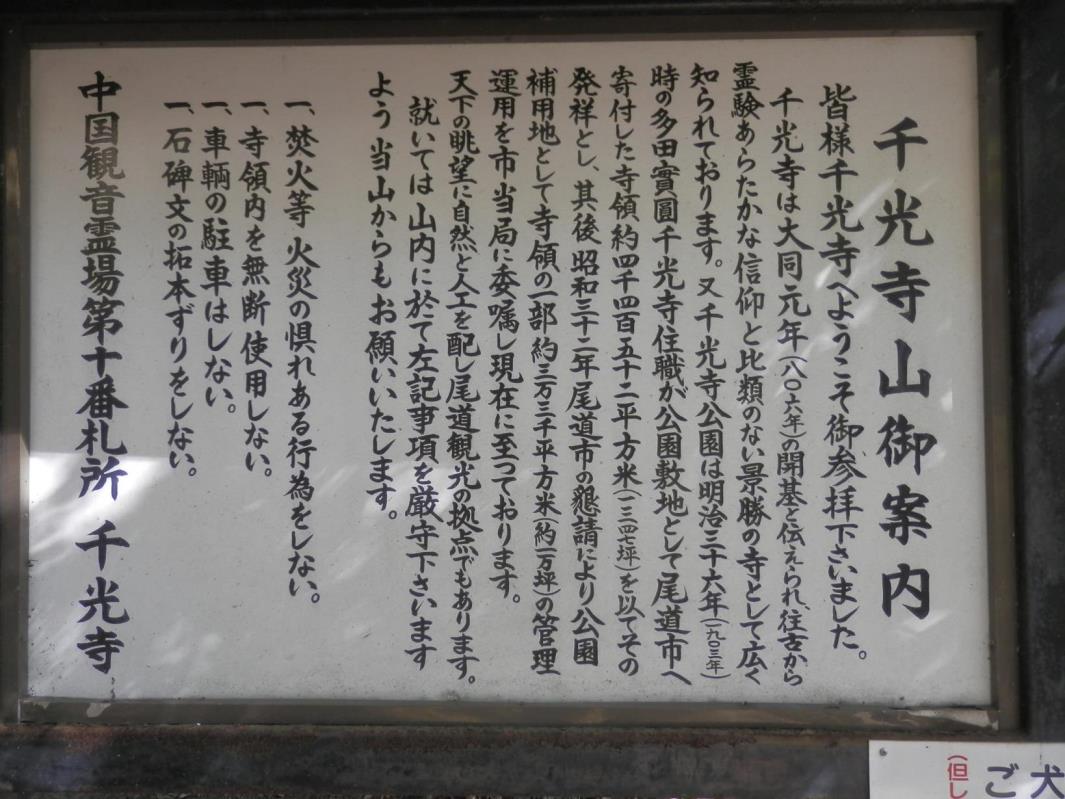 千光寺山御案内
皆様千光寺へようこそ御参拝下さいました。
千光寺は大同元年(八〇六年)の開基と伝えられ、往古から
霊験あらたかな信仰と比類のない景勝の寺として広く
知られております。又千光寺公園は明治三十六年(一九〇三年)
時の多田實圓千光寺住職が公園敷地として尾道市へ
寄付した寺領約四千四百五十二平方米(一三四七坪)を以てその
発祥とし、其後昭和三十二年尾道市の懇請により公園
補用地として寺領の一部約三万三千平方米(約一万坪)の管理
運用を市当局に委嘱し現在に至つております。
天下の眺望に自然と人工を配し尾道観光の拠点でもあります。
就いては山内に於て左記事項を厳守下さいます
よう当山からもお願いいたします。
一、焚火等 火災の惧れある行為をしない。
一、寺領内を無断使用しない。
一、車輌の駐車はしない。
一、石碑文の拓本ずりをしない。
中国観音霊場第十番札所 千光寺
犬
ご
(但し